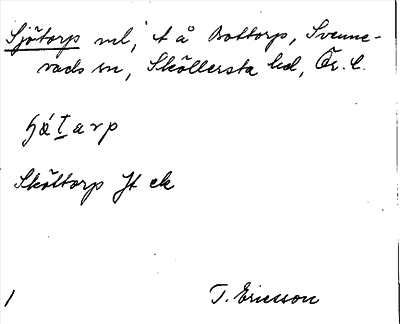 Sjötorp ml, t å Bottorp, Svenne-
vads sn, Sköllersta hd, Ör. l.
Sköttorp Jt ek
1
T. Ericsson